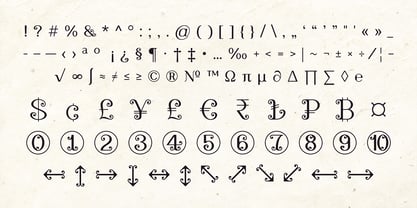 ! ? # % & * ^ ° : ; , . @ ( ) [ ] { } / \ , „ ‘ “ ’ ” ' " « » _
- – — ‹ › ª º ¡ ¿ § ¶ · † ‡ • … ‰ + < = > | ~ ¬ ± × ÷ ⁄ ¦ -
√ ∞ ∫ ≈ ≠ ≤ ≥ © ® № ™ Ω π µ ∂ ∆ ∏ ∑ ◊ ℮
$ ¢ £ ¥ ₤ € ₣ ₹ ₺ ₽ ₿ ¤
⓪ ① ② ③ ④ ⑤ ⑥ ⑦ ⑧ ⑨ ⑩
← ↔ → ↓ ↕ ↔ ↑ ↖ ↗ ↘ ↙ ← →